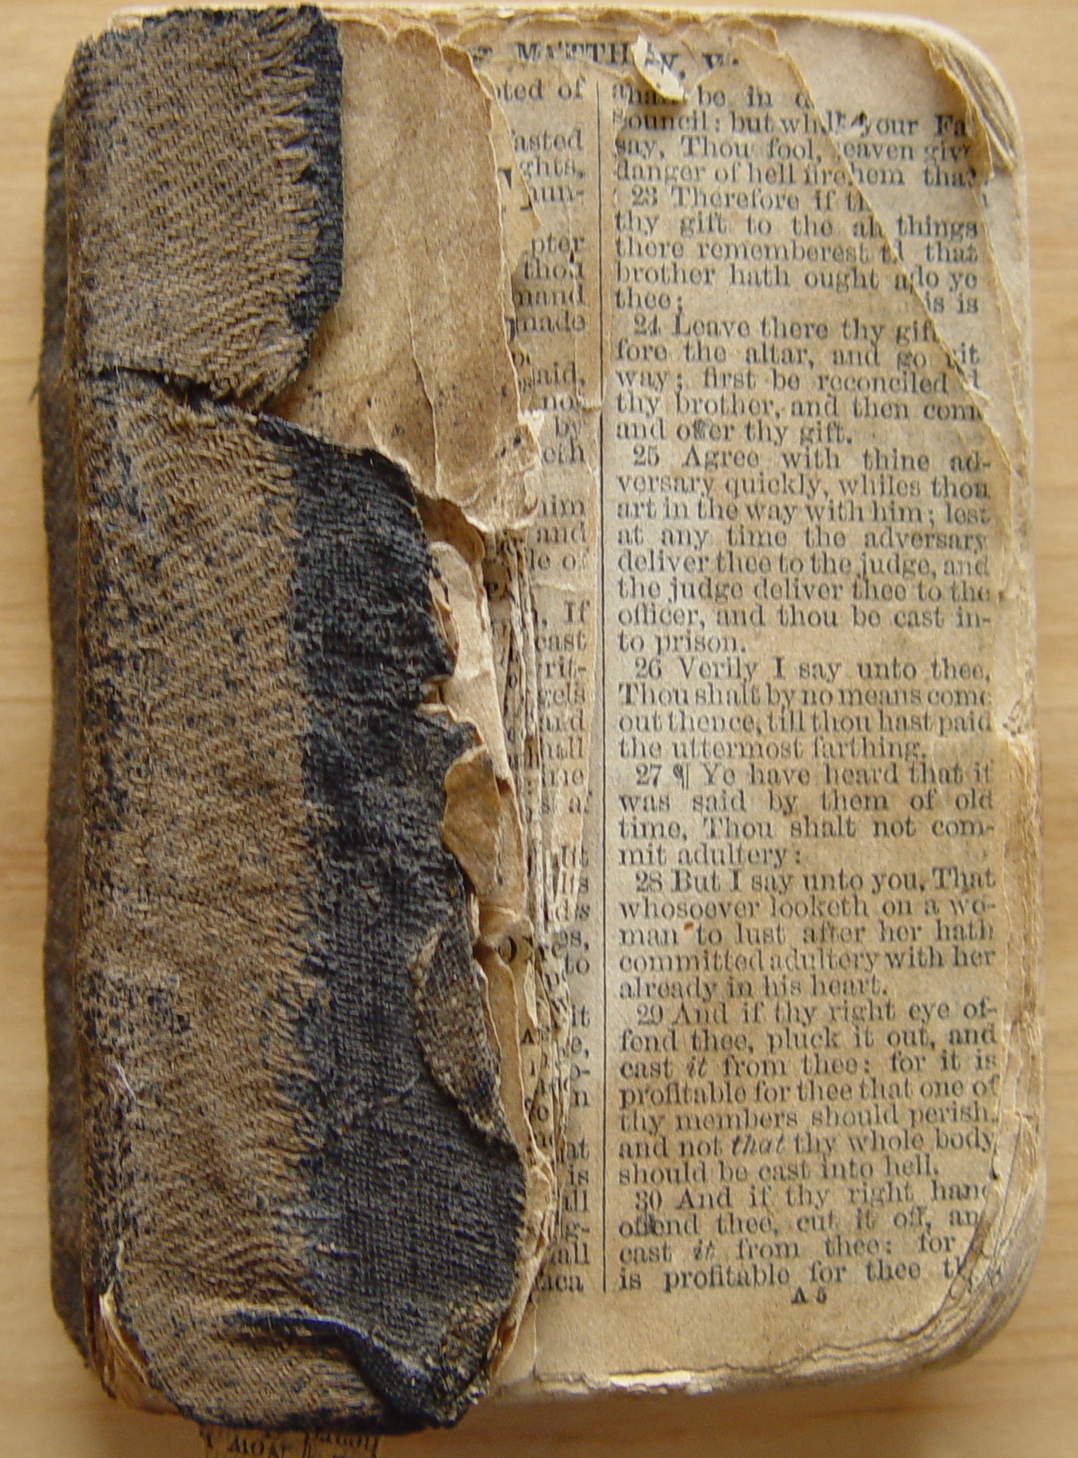 MATTH
pted of
asted
ghts,
hun-
pter
thou
mand
made
said,
not
by
eth
him
and
le of
If
cast
writ-
gels
and
shall
ine
s a
es,
to
it
e,
n
at
is
all
g-
all
aca
shall be in d
council: but wh your Fa
say, Thou fool, eaven giv
danger of hell fire hem that
23 Therefore if th
thy gift to the al things
there rememberest t that
brother hath ought a do ye
thee; is is
24 Leave there thy gif
fore the altar, and go it
way; first be reconciled
thy brother, and then com
and offer thy gift.
25 Agree with thine ad-
versary quickly, whiles thou
art in the way with him; lest
at any time the adversary
deliver thee to the judge, and
the judge deliver thee to the
officer, and thou be cast in-
to prison.
26 Verily I say unto thee,
Thou shalt by no means come
out thence, till thou hast paid
the uttermost farthing.
27 ¶ Ye have heard that it
was said by them of old
time, Thou shalt not com-
mit adultery:
28 But I say unto you, That
whosoever looketh on a wo-
man to lust after her hath
committed adultery with her
already in his heart.
29 And if thy right eye of-
fend thee, pluck it out, and
cast it from thee: for it is
profitable for thee that one of
thy members should perish,
and not that thy whole body
should be cast into hell.
30 And if thy right hand
offend thee, cut it off, an
cast it from thee: for
is profitable for thee th
A 5